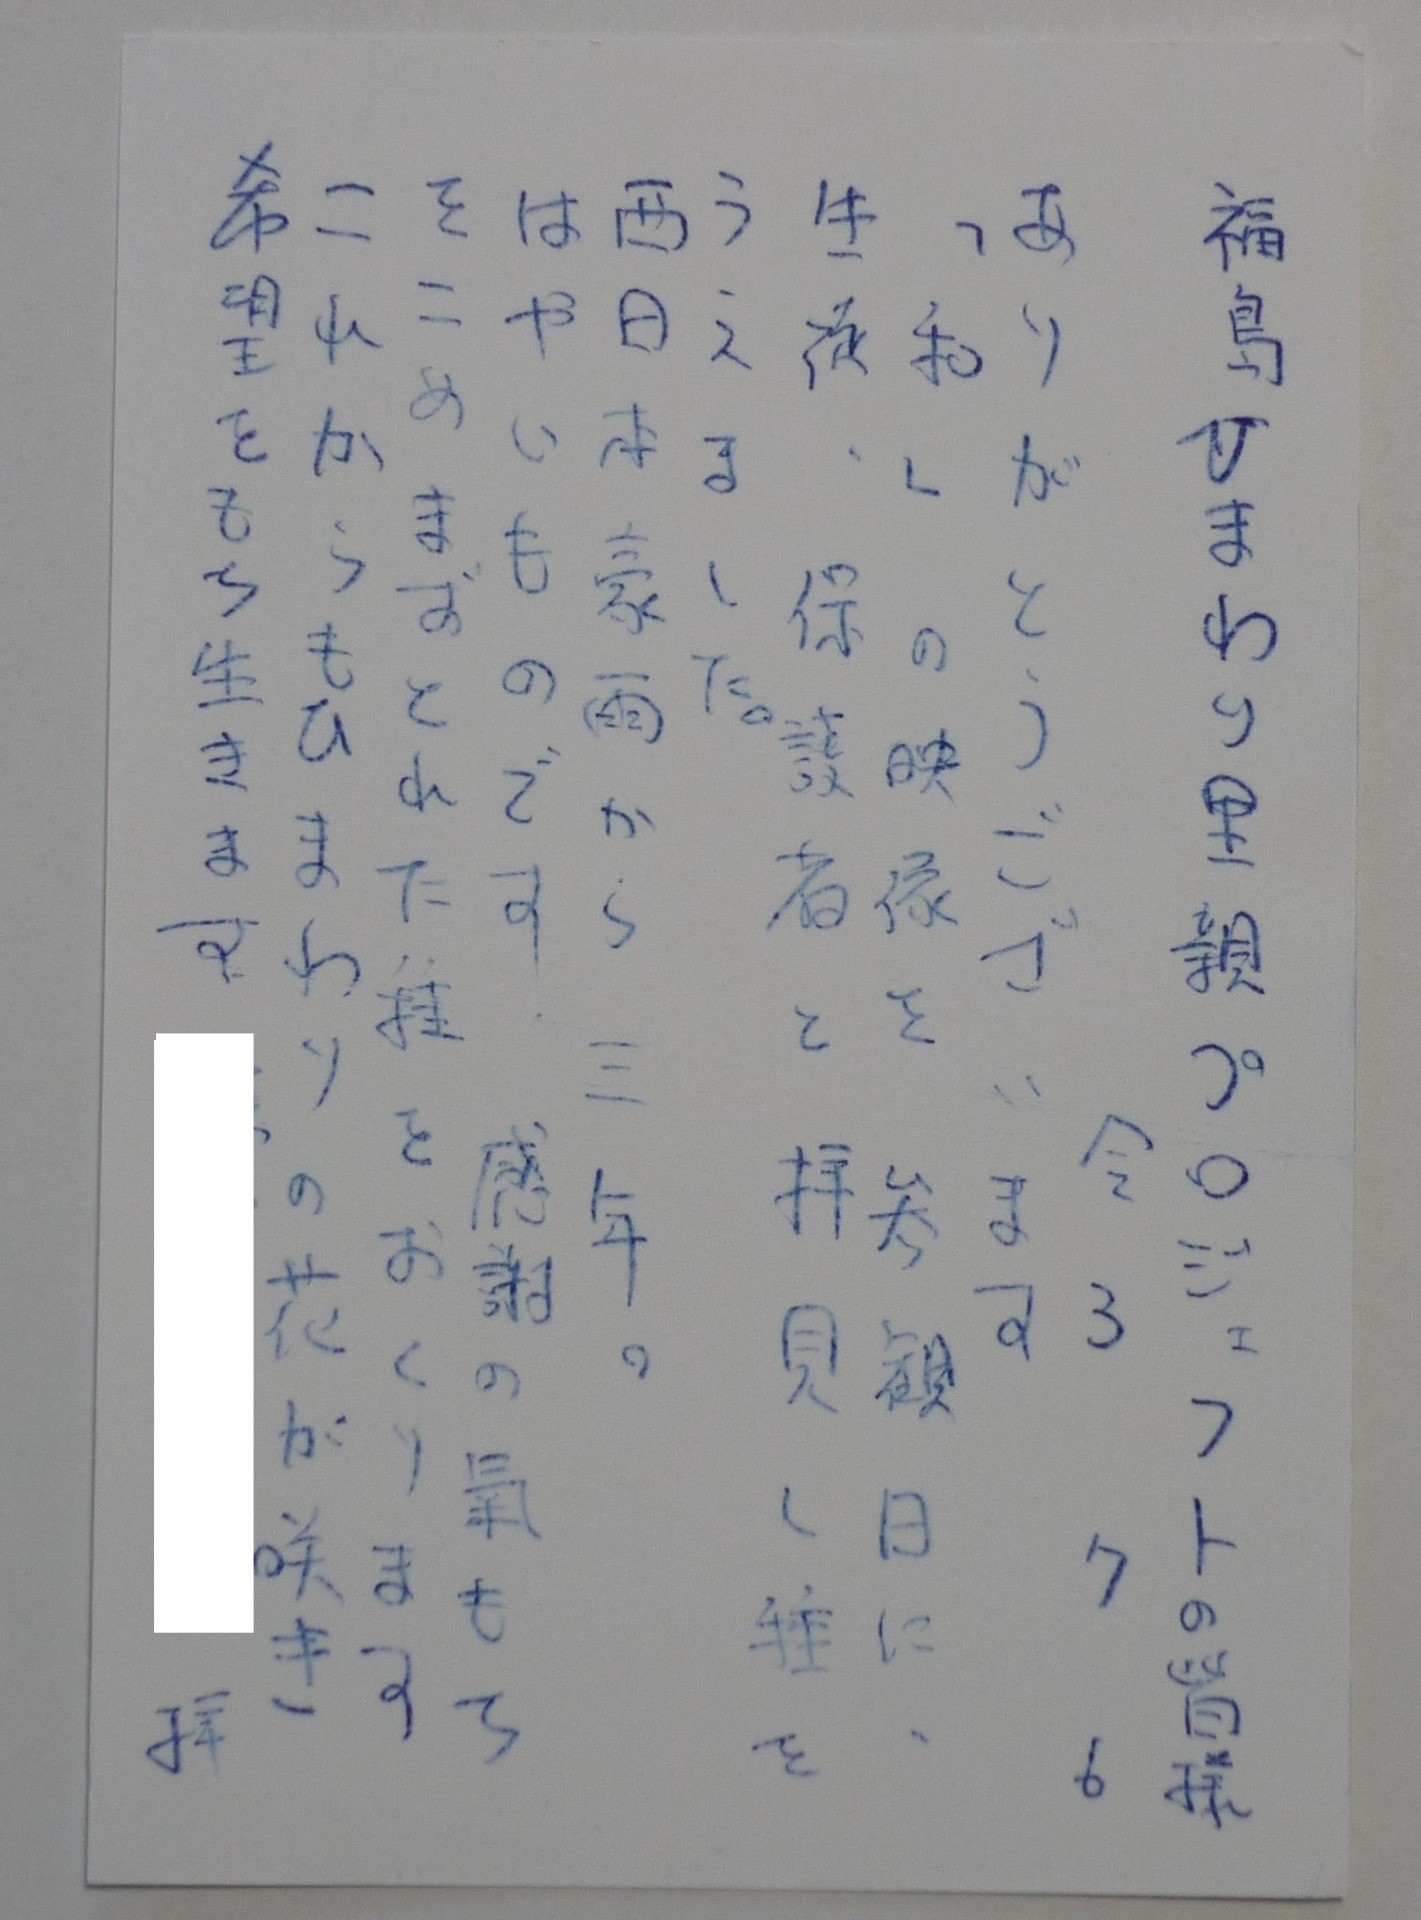 福島ひまわり里親プロジェクトの皆様
令3 7 6
ありがとうございます
っ和しの映像を参観日に、
生徒、保護者と拝見し種を
うえました。
西日本豪雨から三年。
はやいものです. 感謝の氣もち
をこめまずとれた種をおくります
これからもひまわりの花が咲き
希望をもち生きます
拝